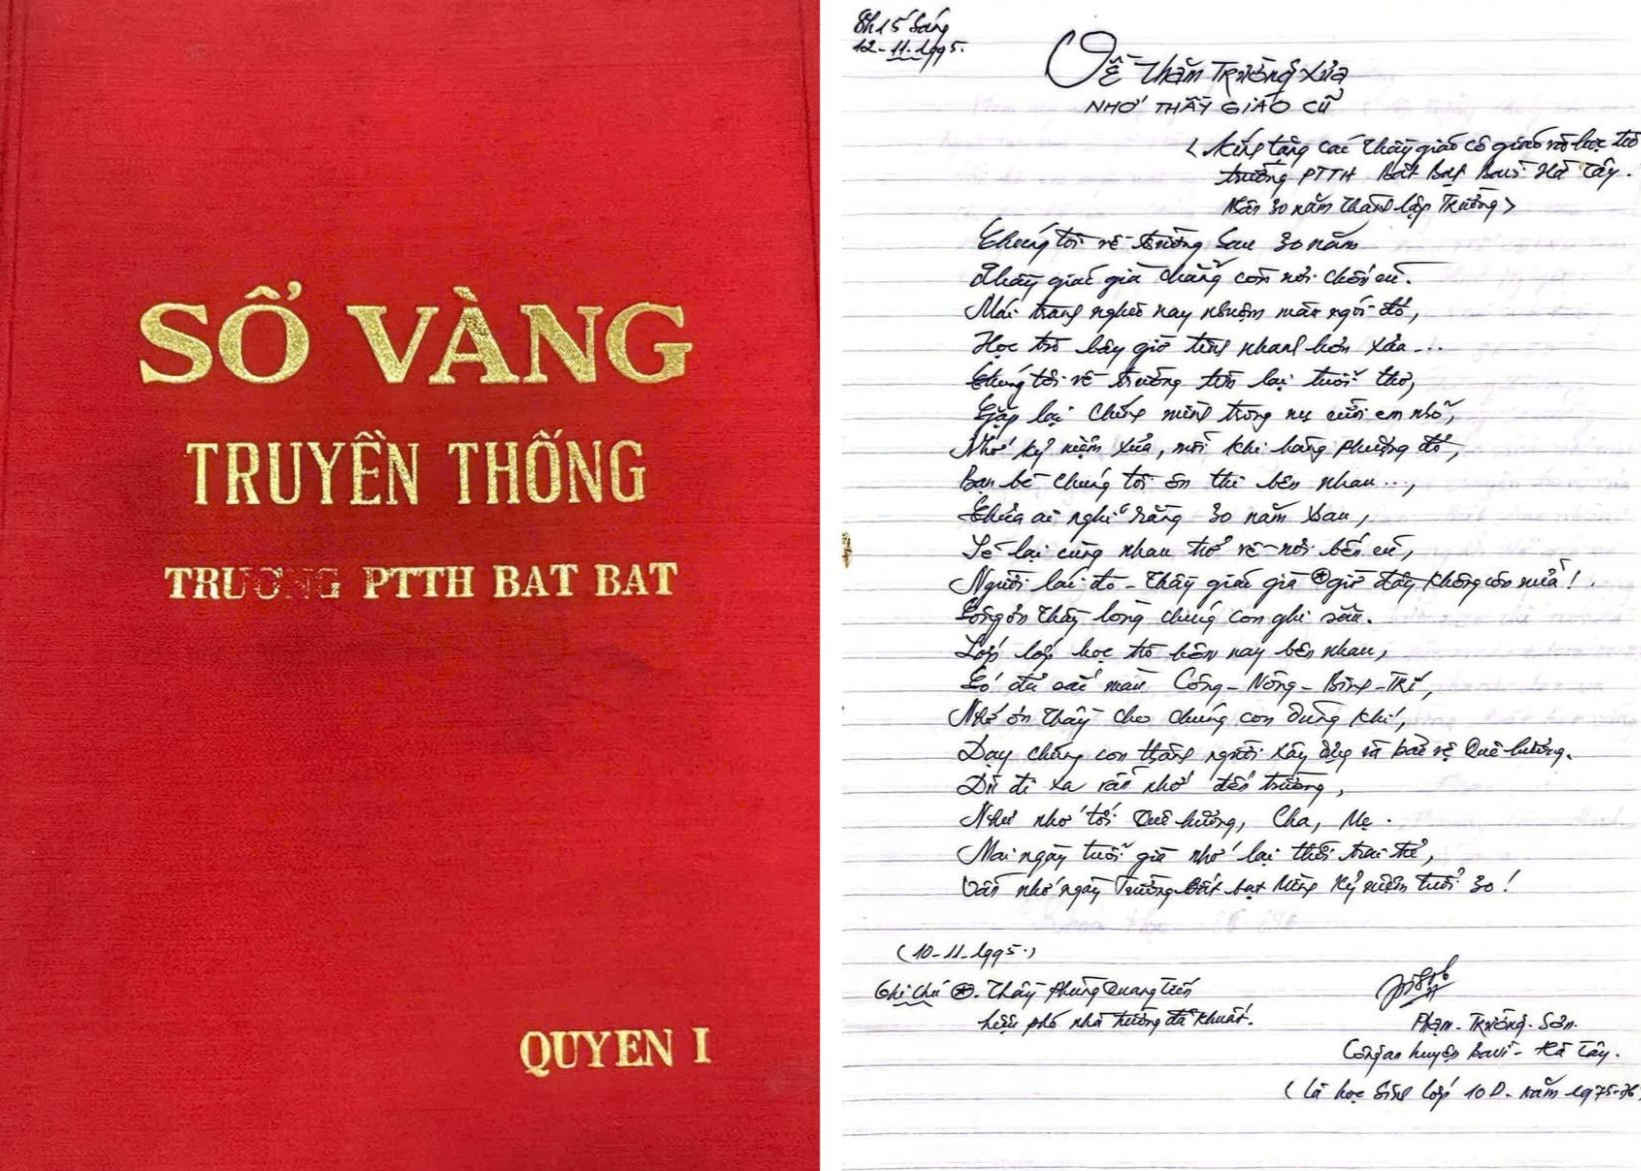 SỔ VÀNG
TRUYỀN THỐNG
TRƯỜNG PTTH BAT BAT
QUYEN I
8h15 Sáng
12-11-1995.
Về Thăm Trường Xưa
NHỚ THẦY GIÁO CŨ
(Kính tặng các Thầy giáo cô giáo và học trò
trường PTTH Bất Bạt Ba Vì Hà Tây.
Nhân 30 năm thành lập Trường)
Chúng tôi về trường sau 30 năm
Thầy giáo già chẳng còn nơi chốn cũ.
Mái tranh nghèo nay nhuộm màu ngói đỏ,
Học trò bây giờ tính nhanh hơn xưa...
Chúng tôi về trường tìm lại tuổi thơ,
Gặp lại chính mình trong nụ cười em nhỏ,
Nhớ kỷ niệm xưa, mỗi khi hàng phượng đỏ,
Bạn bè chúng tôi ôn thi bên nhau...,
Chưa ai nghĩ rằng 30 năm sau,
Sẽ lại cùng nhau trở về nơi bến cũ,
Người lái đò - Thầy giáo già ⊛ giờ đây không còn nữa!
Công ơn Thầy lòng chúng con ghi sâu.
Lớp lớp học trò hôm nay bên nhau,
Có đủ sắc màu Công - Nông - Binh - Trí,
Nhớ ơn Thầy cho chúng con dũng khí,
Dạy chúng con thành người xây dựng và bảo vệ Quê hương.
Dù đi xa vẫn nhớ đến trường,
Như nhớ tới Quê hương, Cha, Mẹ.
Mai ngày tuổi già nhớ lại thời trai trẻ,
Vẫn nhớ ngày Trường Bất bạt Mừng Kỷ niệm tuổi 30!
(10-11-1995.)
Ghi chú ⊛. Thầy Phùng Quang Tiến
hiệu phó nhà trường đã khuất.
Phạm Trường Sơn.
Công an huyện Ba vì - Hà Tây.
(Là học sinh lớp 10D. năm 1975-76)